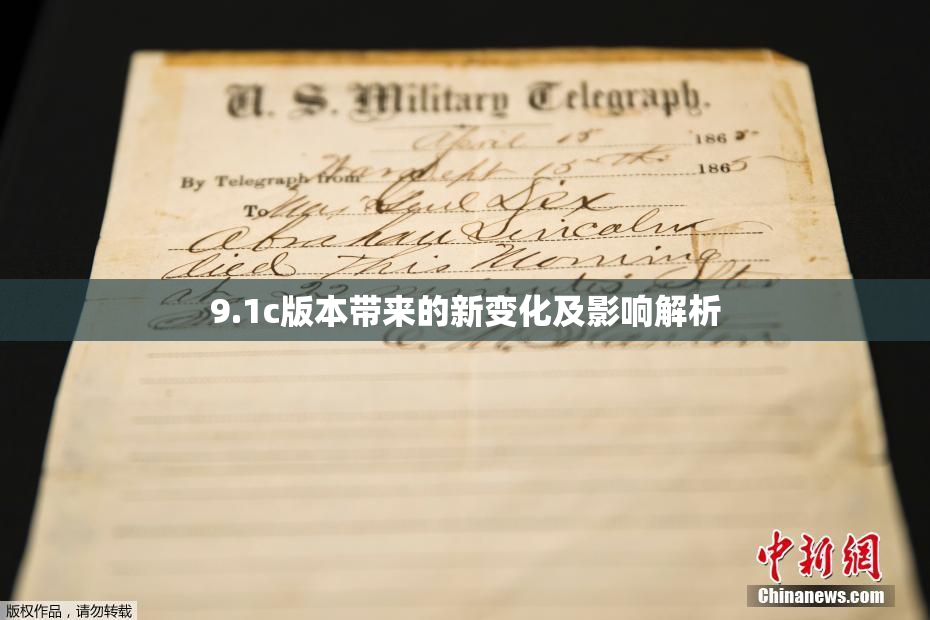 U. S. Military Telegraph.
April 15 1865
By Telegraph from War Dept 15th 1865
To Maj Genl Dix
Abraham Lincoln
died This Morning
at 22 minutes after
9.1c版本带来的新变化及影响解析
E. M. Stanton
中新網
Chinanews.com
版权作品，请勿转载